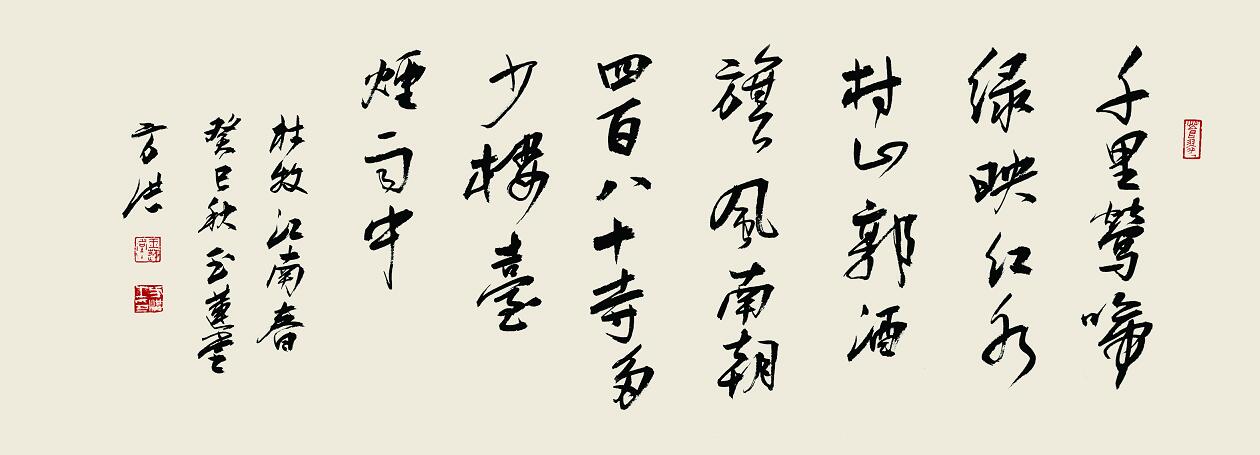 千里鶯啼
绿映红水
村山郭酒
旗風南朝
四百八十寺多
少樓臺
煙雨中
杜牧江南春
癸巳秋玉蓮堂
方洪